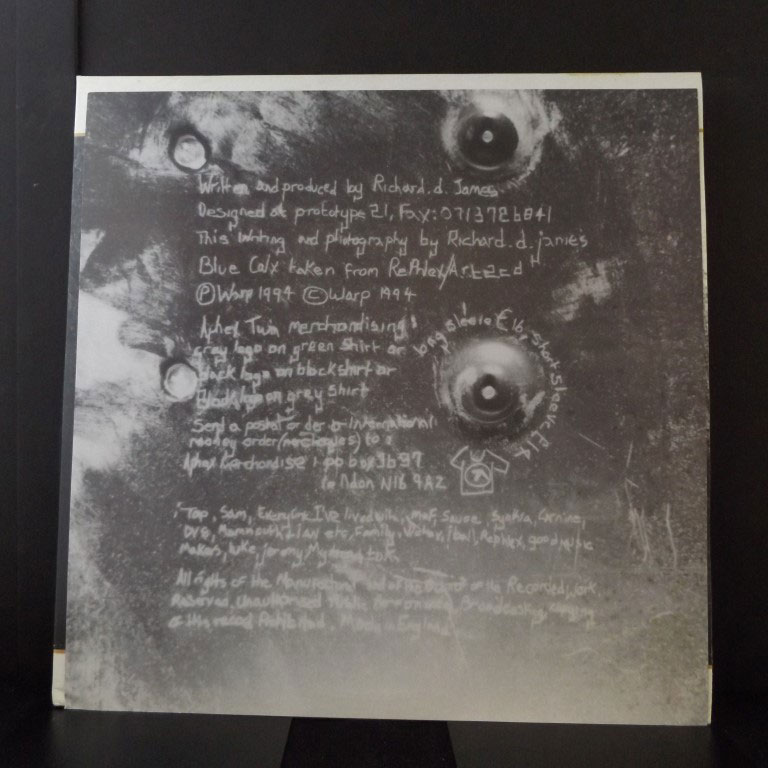 Written and produced by Richard. d. James
Designed at prototype 21, Fax: 0713726841
This writing and photography by Richard. d. james
Blue Calx taken from Rephlex/
Ⓟ Warp 1994 © Warp 1994
Aphex Twin merchandising!
grey logo on green shirt or
black logo on black shirt or
black logo on grey shirt
long sleeve £16, short sleeve £14
Send a postal order or international
money order (no cheques) to:
Aphex merchandise: po box
London N16 9AZ
Top, Sam, Everyone I've lived with,
etc, Family, Rephlex, good
Makers, luke, jeremy,
All rights of the Manufacturer and of the owner of the Recorded work
Reserved. Unauthorised Public Performance, Broadcasting, copying
of this record Prohibited. Made in England